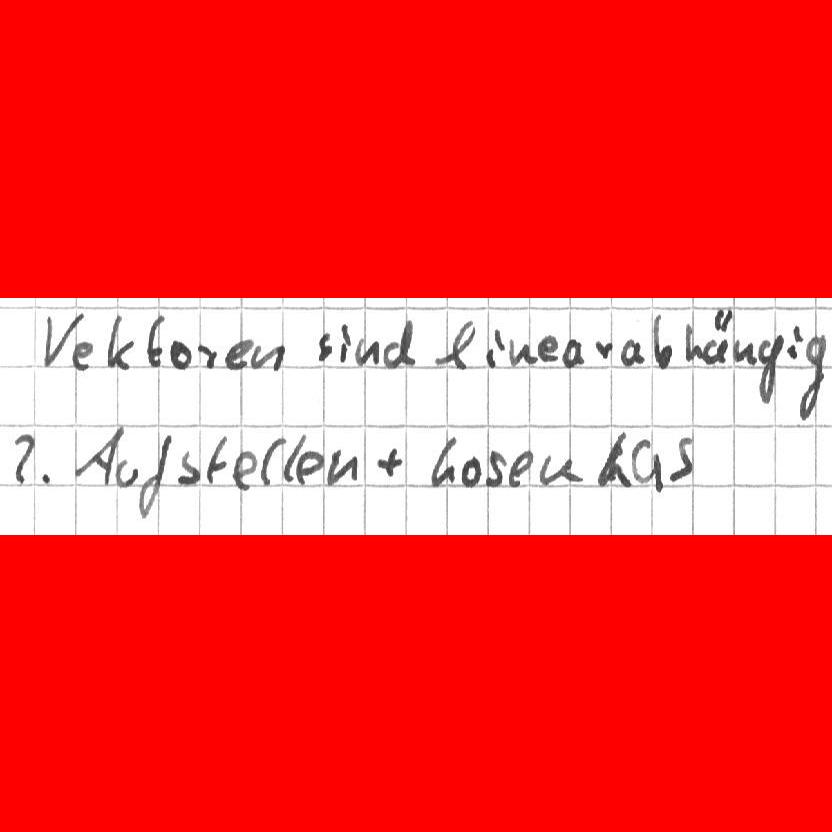 Vektoren sind linear abhängig
2. Aufstellen + Lösen LGS